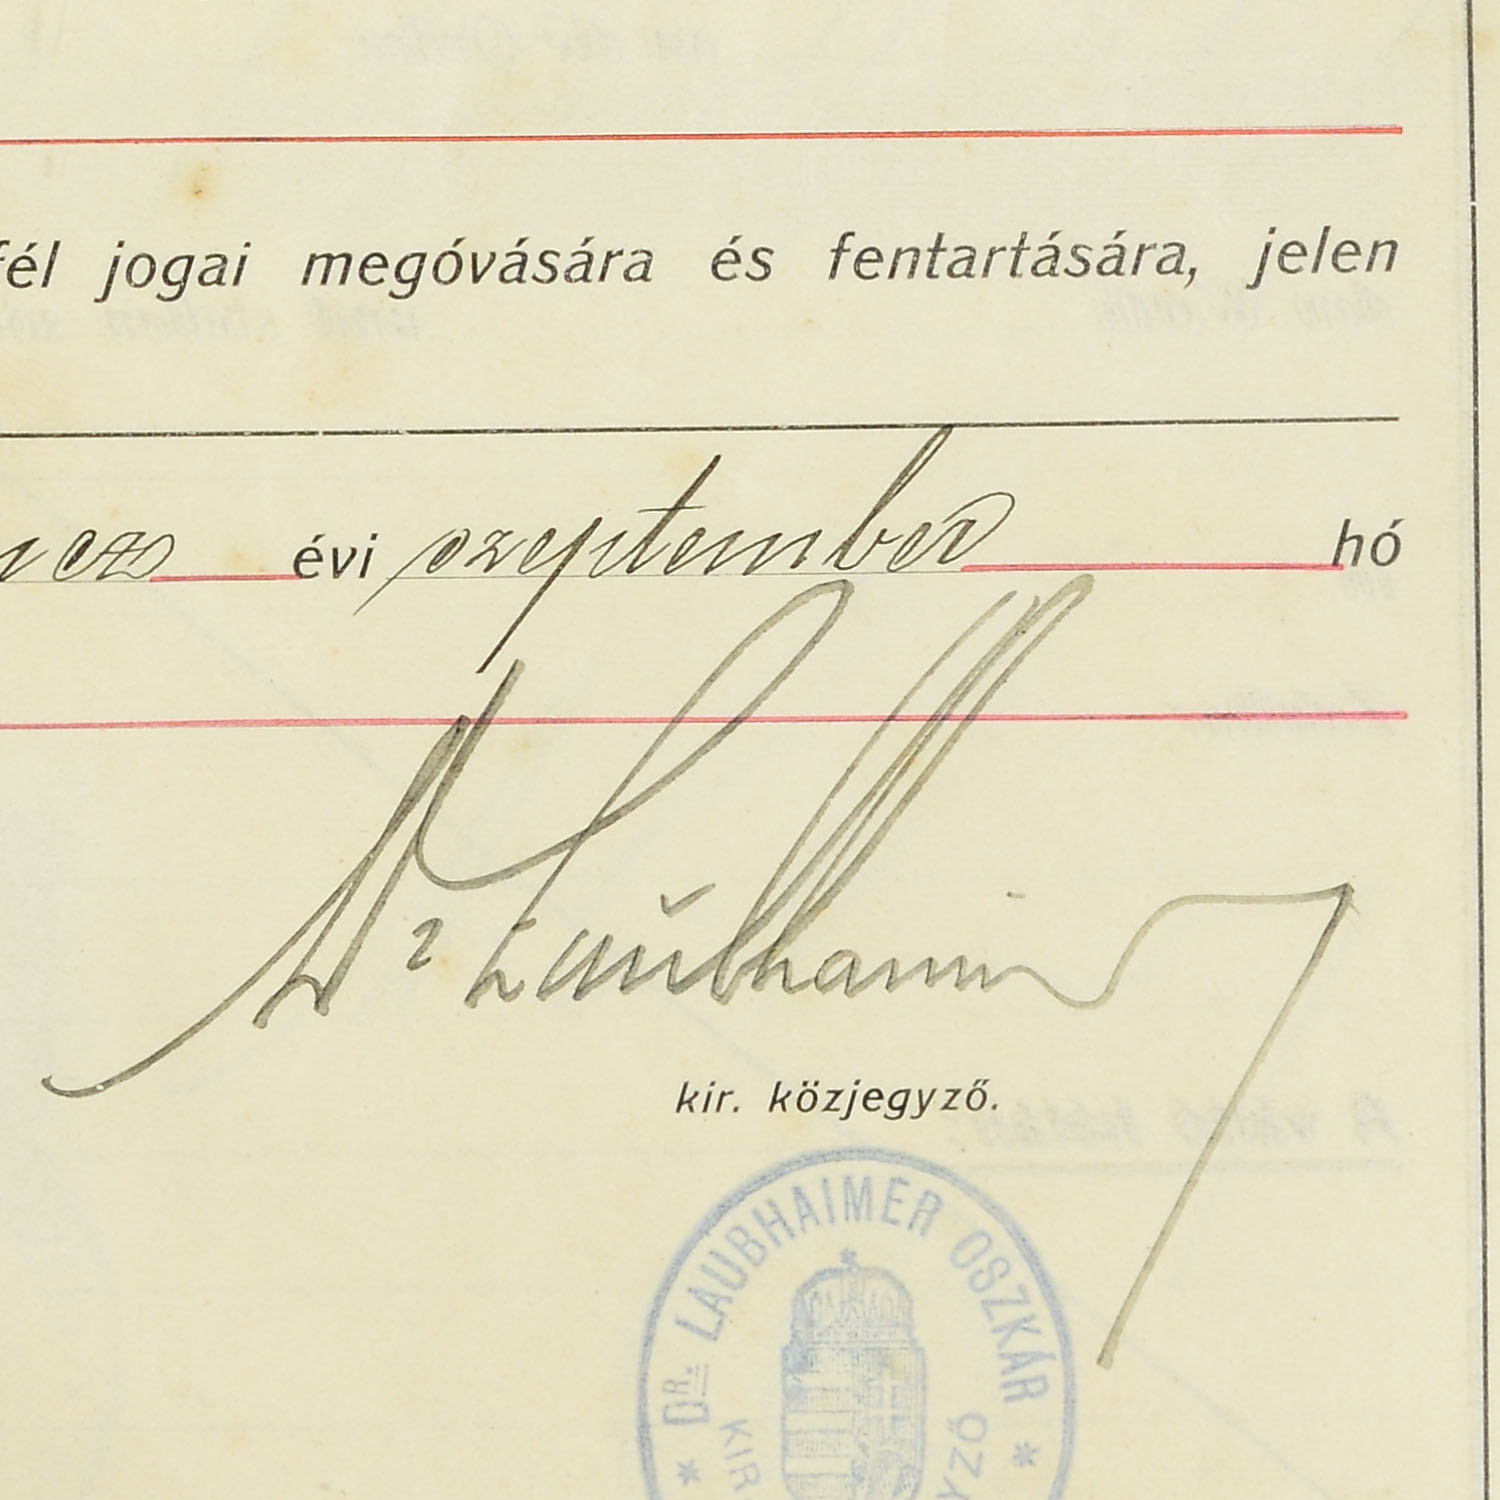 fél jogai megóvására és fentartására, jelen
évi szeptember hó
Dr Laubhaimer
kir. közjegyző.
* DR. LAUBHAIMER OSZKÁR *